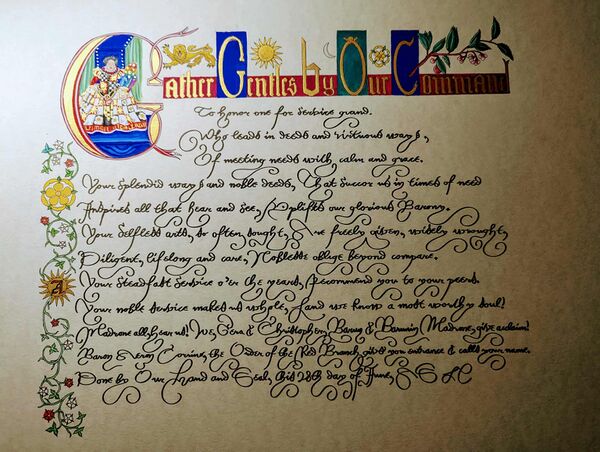 Gather Gentles by Our Command
To honor one for service grand.
Who leads in deeds and virtuous ways,
Of meeting needs with calm and grace.
Your splendid ways and noble deeds, That succor us in times of need
Inspires all that hear and see, Uplifts our glorious Barony.
Your Selfless arts, so often sought, Are freely given, widely wrought,
Diligent, lifelong and care, Noblesse oblige beyond compare.
Your Steadfast Service o'er the years, Recommend you to your peers.
Your noble service makes us whole, And we know a most worthy soul!
A
Madrone all, hear us! We, & Christophe, & Madrone, give acclaim!
Baron Corvine, the Order of the Red Branch, gives you entrance & calls your name.
Done by Our Hand and Seal, this 28th day of June,